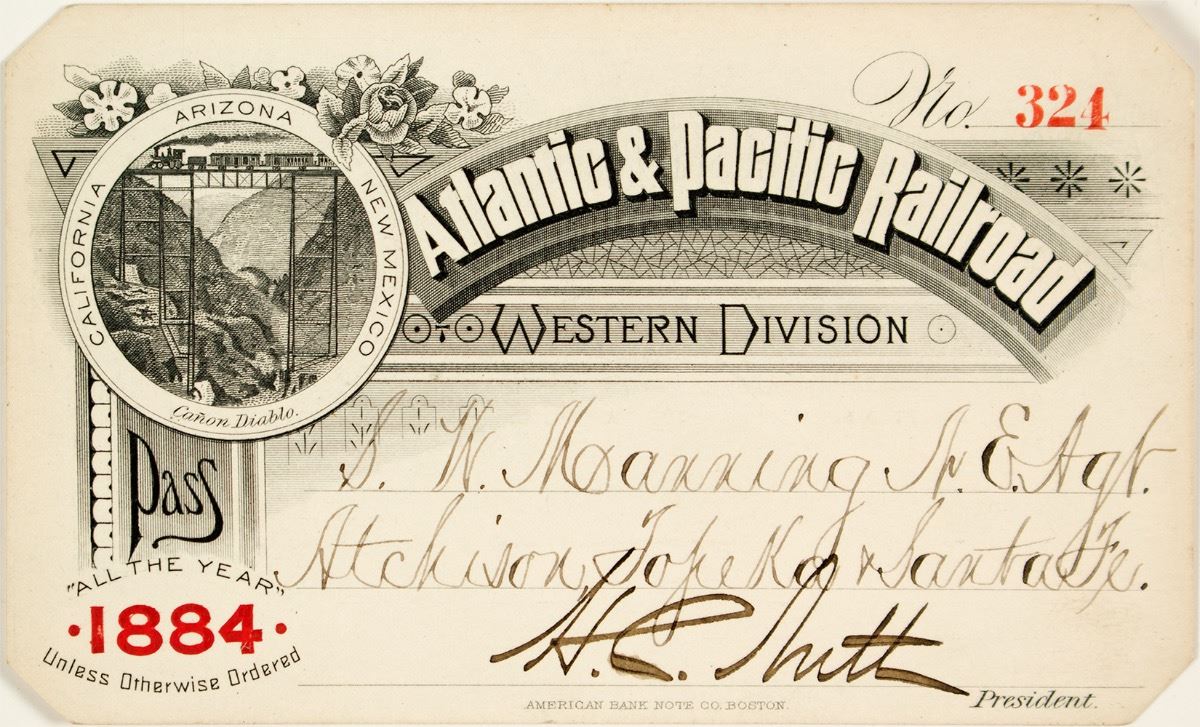 No. 324
ARIZONA
CALIFORNIA
NEW MEXICO
Cañon Diablo.
Atlantic & Pacific Railroad
WESTERN DIVISION
Pass
S. W. Manning N. E. Agt.
Atchison Topeka & Santa Fe.
"ALL THE YEAR"
·1884·
Unless Otherwise Ordered
H. C. Nutt
President.
AMERICAN BANK NOTE CO. BOSTON.